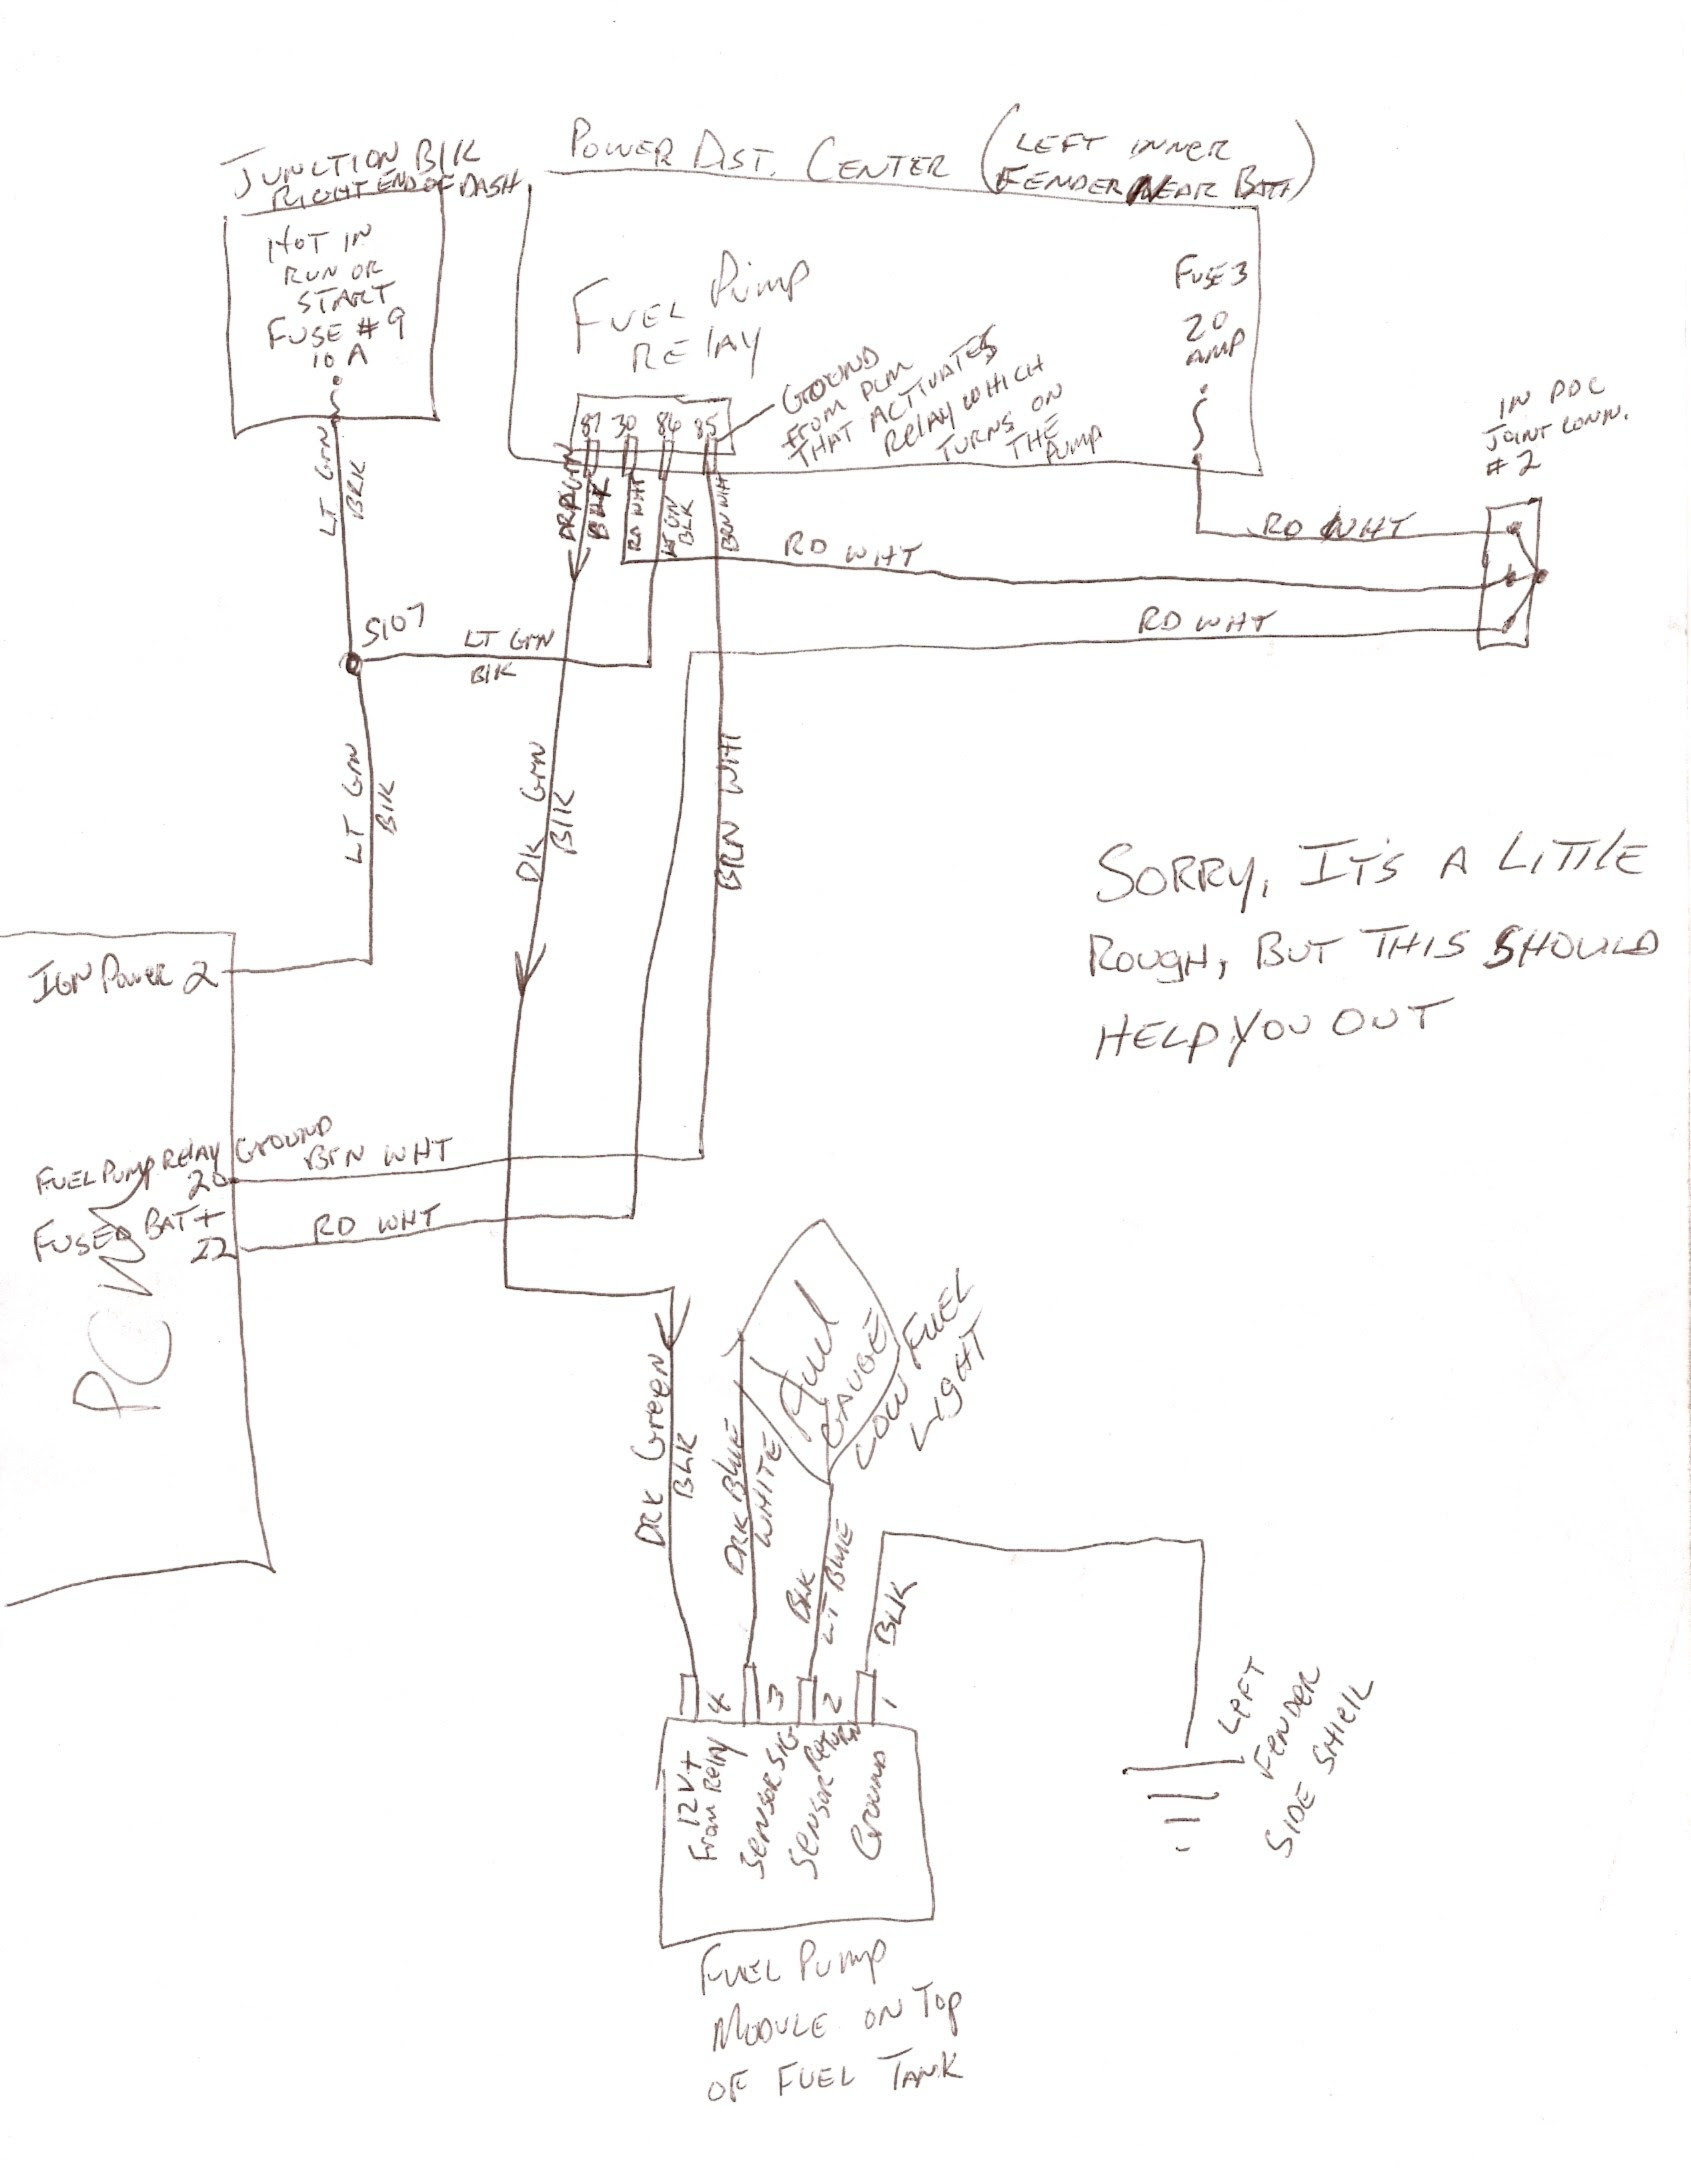 JUNCTION BlK
RIGHT END OF DASH
POWER DIST. CENTER
(LEFT INNER
FENDER NEAR BATT)
HOT IN
RUN OR
START
FUSE #9
10 A
FUEL PUMP
RELAY
GROUND
FROM PCM
THAT ACTIVATES
RELAY WHICH
TURNS ON
THE
PUMP
FUSE 3
20
AMP
IN PDC
JOINT CONN.
#2
87 30 86 85
LT GRN
BRK
DRK GRN
BLK
RD WHT
LT GN
BLK
BRN WHT
RD WHT
RD WHT
RD WHT
S107
LT GRN
BlK
LT GRN
BlK
DK GRN
BlK
BRN WHT
SORRY, IT'S A LITTlE
ROUGH, BUT THIS SHOULD
HELP YOU OUT
IGN POWER 2
FUEL PUMP RELAY GROUND
20
BRN WHT
FUSED BAT +
22
RD WHT
PCM
FUEL
GAUGE
LOW FUEL
LIGHT
DRK GREEN
BLK
DRK BLUE
WHITE
BLK
LT BLUE
BLK
4 3 2 1
12V+
From Relay
SENSOR SIG
SENSOR RETURN
GROUND
LEFT
FENDER
SIDE SHIElL
FUEL PUMP
MODULE ON TOP
OF FUEL TANK